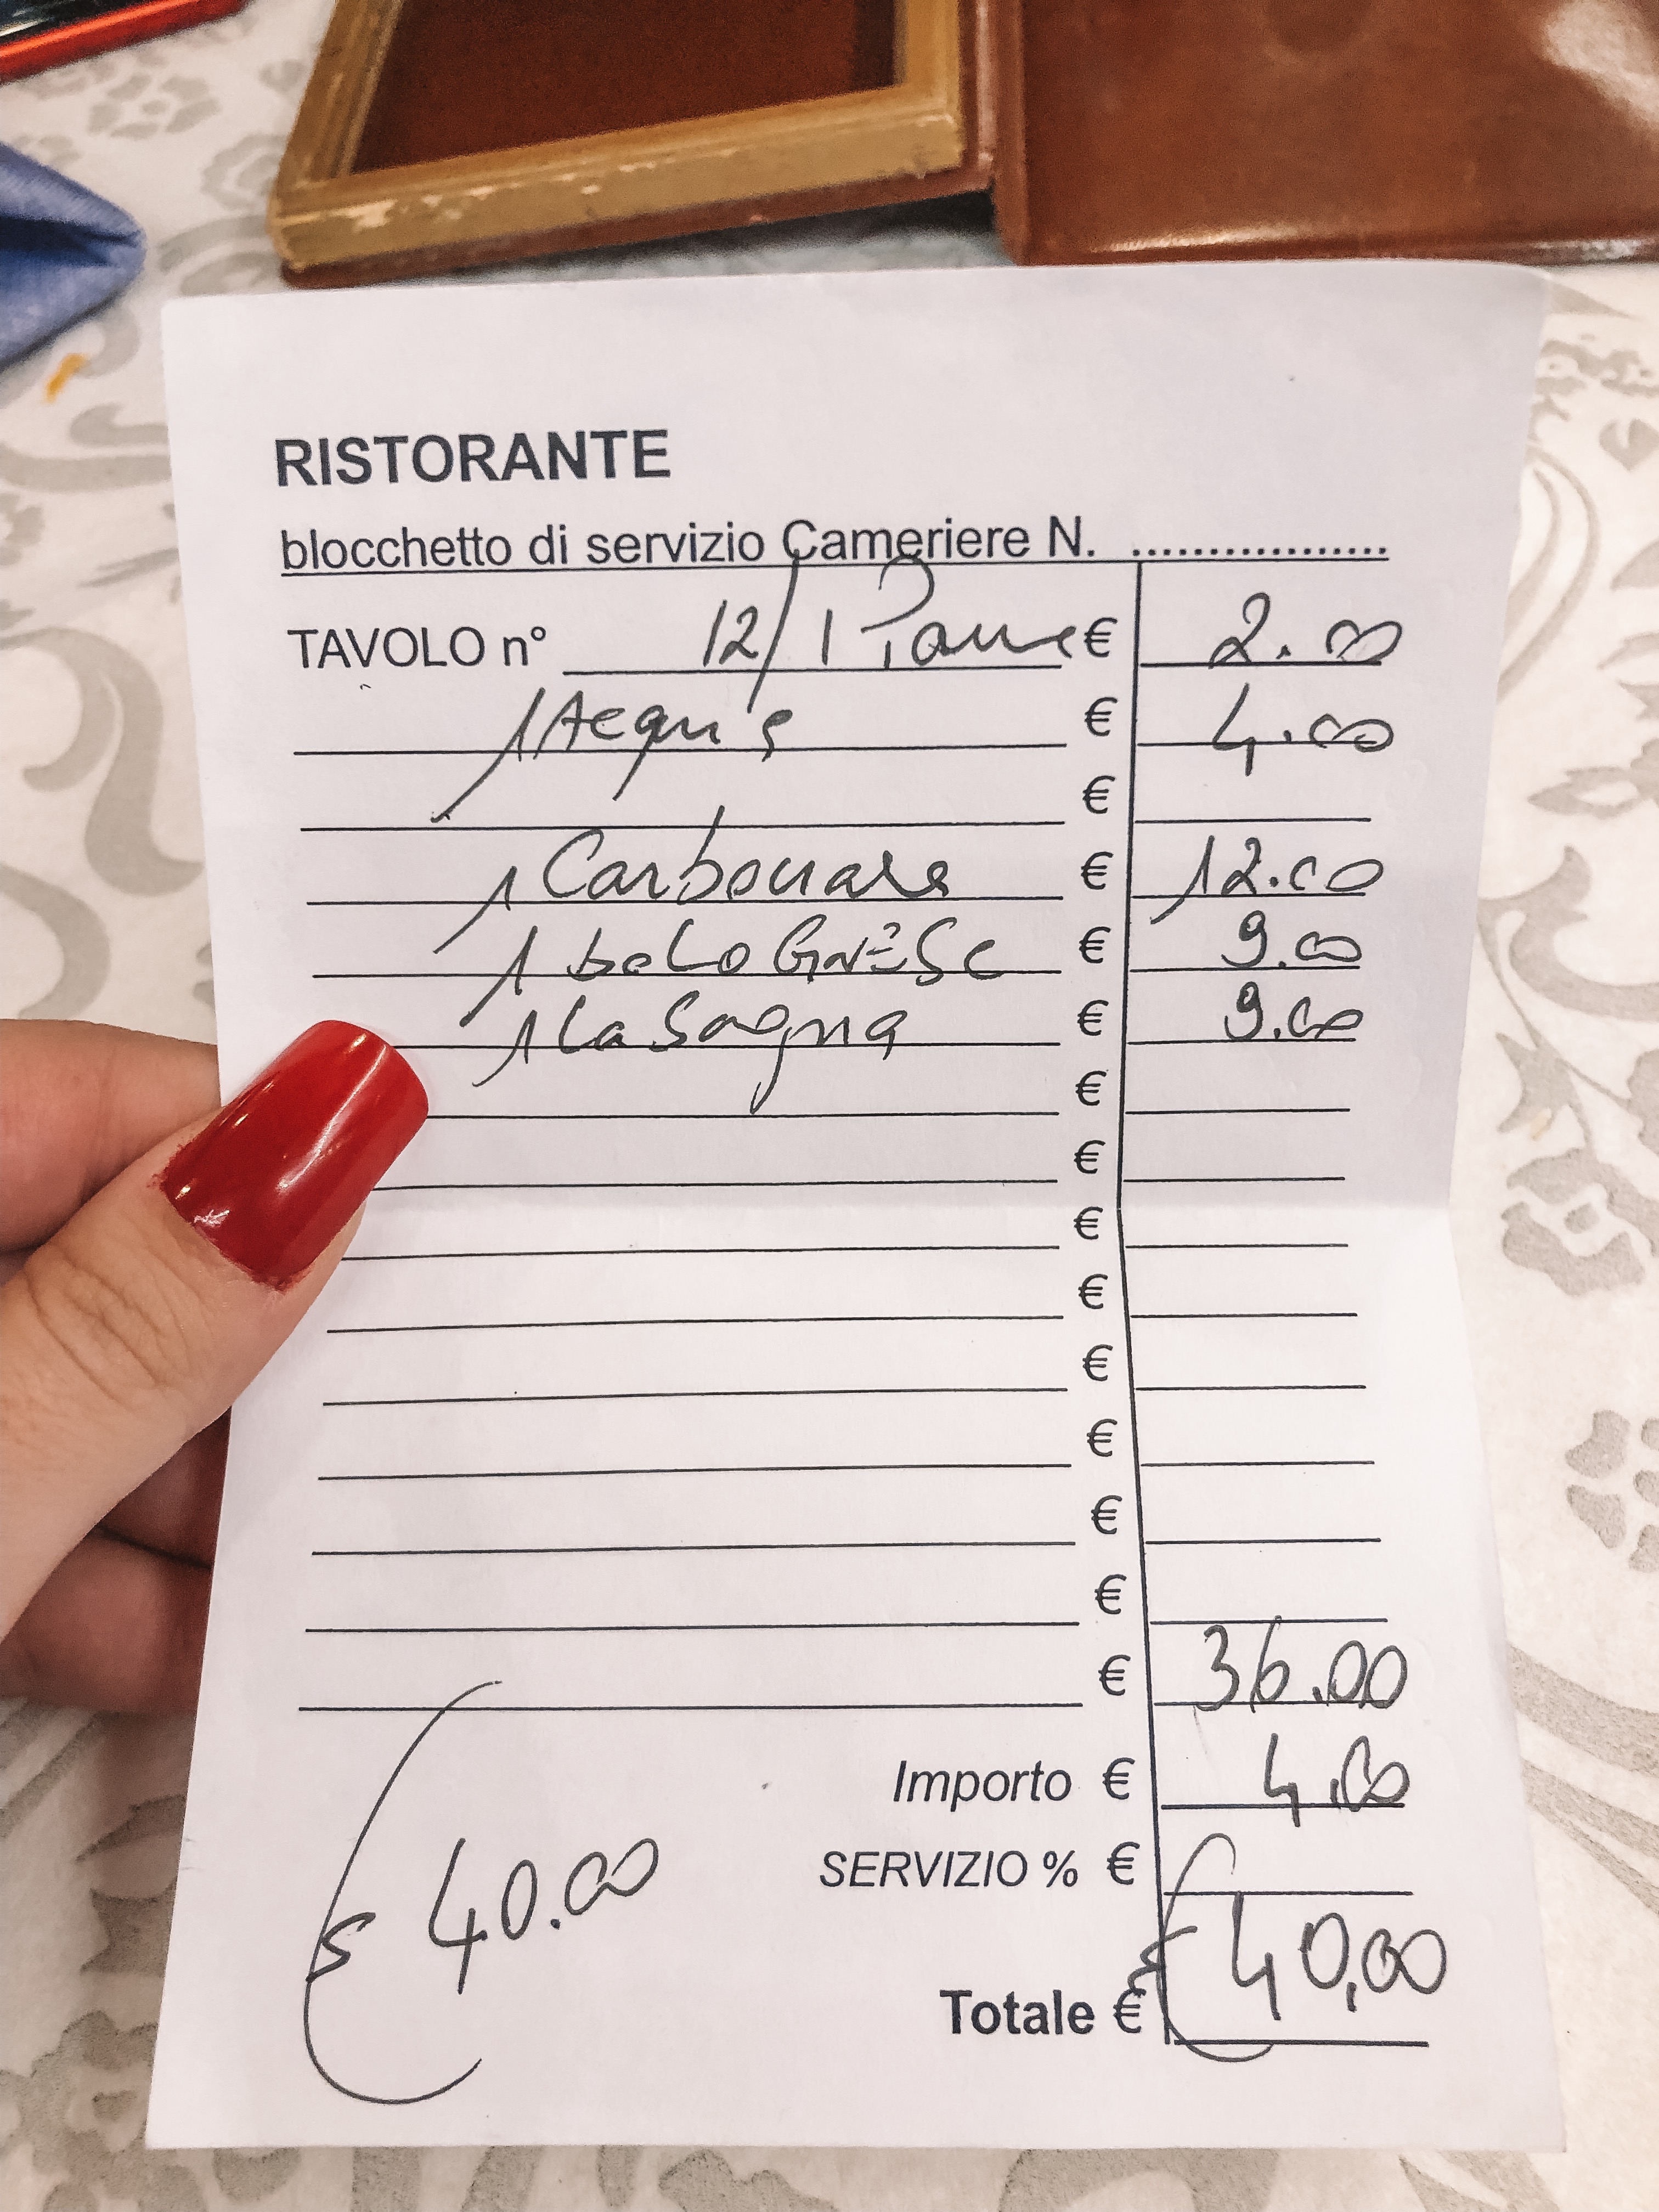 RISTORANTE
blocchetto di servizio Cameriere N. ..................
TAVOLO n° 12/ 1 Pane € 2.00
1 Acqua € 4.00
€
1 Carbonara € 12.00
1 boLOGNESe € 9.00
1 LaSagna € 9.00
€
€
€
€
€
€
€
€
€ 36.00
Importo € 4.00
SERVIZIO % €
€ 40.00
Totale € € 40,00